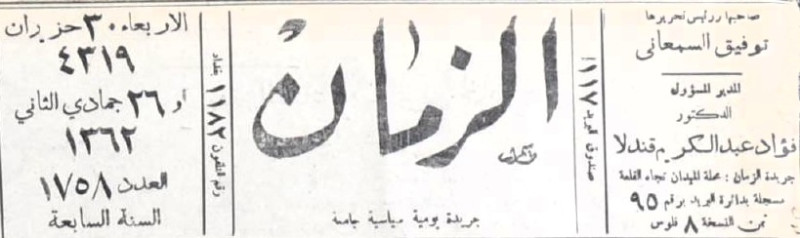 صاحبها ورئيس تحريرها
توفيق السمعاني
المدير المسؤول
الدكتور
فؤاد عبدالكريم قندلا
جريدة الزمان : محلة الميدان تجاه القلعة
مسجلة بدائرة البريد برقم ٩٥
ثمن النسخة ٨ فلوس
صندوق البريد ١١٧
الزمان
جريدة يومية سياسية جامعة
رقم التلفون ١١٨٢ بغداد
الاربعاء ٣٠ حزيران
٤٣١٩
او ٢٦ جمادي الثاني
١٣٦٢
العدد ١٧٥٨
السنة السابعة